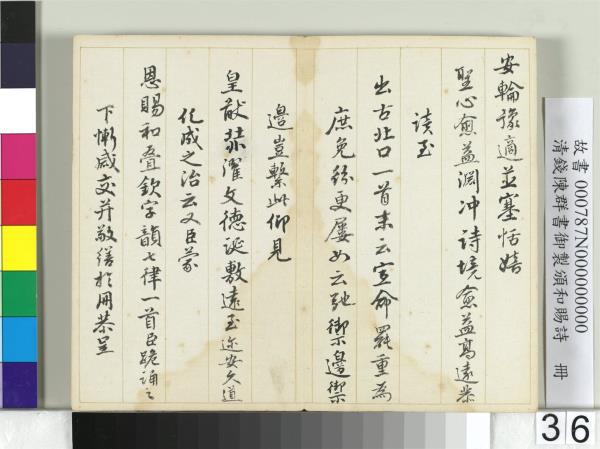 安輪豫適並塞恬嬉
聖心愈益淵沖詩境愈益高遠恭
讀至
出古北口一首末云宣命罷重為
庶免紛更屢如云弛禦邊禦
邊豈繫此仰見
皇猷赫濯文德誕敷遠至迩安久道
化成之治云又臣蒙
恩賜和疊欽字韻七律一首臣跪誦之
下慚感交并敬繕於冊恭呈
故書 000787N000000000
清錢陳群書御製頒和賜詩 冊
36